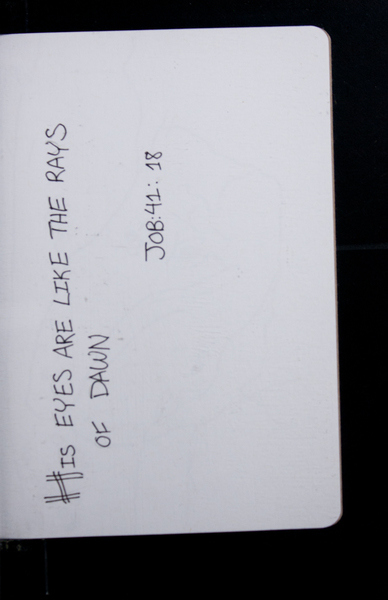 HIS EYES ARE LIKE THE RAYS
OF DAWN
JOB:41:18